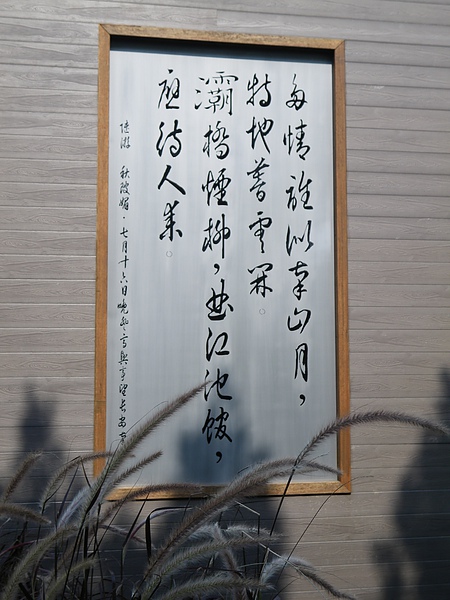 多情誰似南山月，
特地暮雲開。
灞橋煙柳，曲江池館，
應待人來。
陸游 秋波媚·七月十六日晚登高興亭望長安